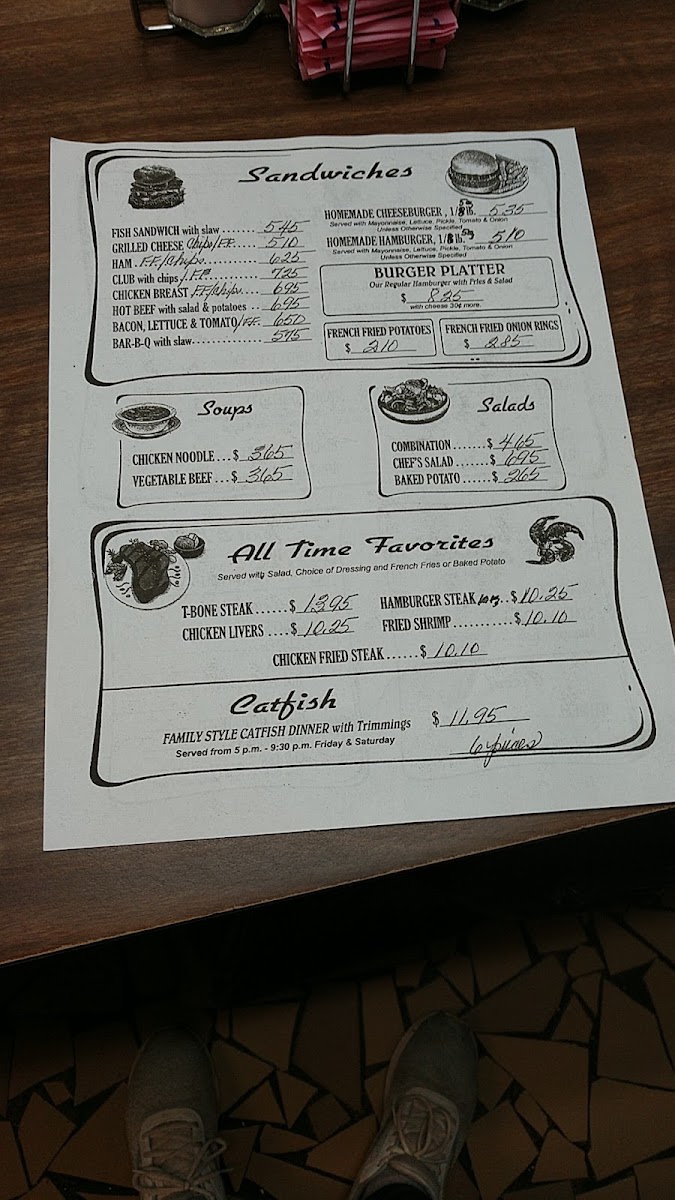 Sandwiches
FISH SANDWICH with slaw ....... 545
GRILLED CHEESE Chips/F.F. .... 510
HAM . F.F/Chips ........... 625
CLUB with chips /F.F. .......... 725
CHICKEN BREAST F.F/Chips .... 695
HOT BEEF with salad & potatoes .. 695
BACON, LETTUCE & TOMATO/F.F. 650
BAR-B-Q with slaw ............. 575
HOMEMADE CHEESEBURGER , 1/3 lb. 535
Served with Mayonnaise, Lettuce, Pickle, Tomato & Onion
Unless Otherwise Specified
HOMEMADE HAMBURGER, 1/3 lb. 510
Served with Mayonnaise, Lettuce, Pickle, Tomato & Onion
Unless Otherwise Specified
BURGER PLATTER
Our Regular Hamburger with Fries & Salad
$ 825
with cheese 30¢ more.
FRENCH FRIED POTATOES
$ 210
FRENCH FRIED ONION RINGS
$ 285
Soups
CHICKEN NOODLE ... $ 365
VEGETABLE BEEF ... $ 365
Salads
COMBINATION ....... $ 465
CHEF'S SALAD ....... $ 695
BAKED POTATO ...... $ 265
All Time Favorites
Served with Salad, Choice of Dressing and French Fries or Baked Potato
T-BONE STEAK ...... $ 13.95
CHICKEN LIVERS .... $ 10.25
HAMBURGER STEAK .. $ 10.25
FRIED SHRIMP ........... $ 10.10
CHICKEN FRIED STEAK ...... $ 10.10
Catfish
FAMILY STYLE CATFISH DINNER with Trimmings $ 11.95
Served from 5 p.m. - 9:30 p.m. Friday & Saturday